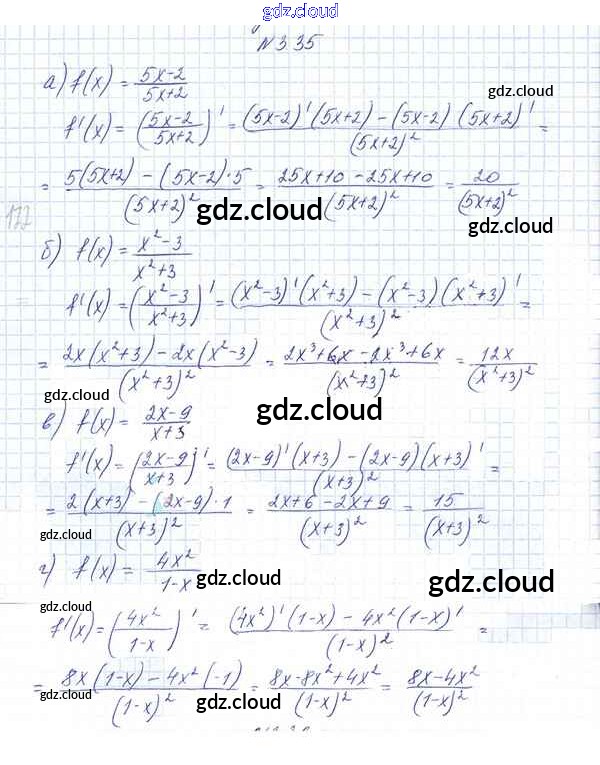 gdz.cloud
N 335
а) f(x) = (5x-2)/(5x+2)
f'(x) = ((5x-2)/(5x+2))' = ((5x-2)'(5x+2) - (5x-2)(5x+2)')/(5x+2)² =
= (5(5x+2) - (5x-2)·5)/(5x+2)² = (25x+10 - 25x+10)/(5x+2)² = 20/(5x+2)²
112
gdz.cloud gdz.cloud
б) f(x) = (x²-3)/(x²+3)
gdz.cloud
f'(x) = ((x²-3)/(x²+3))' = ((x²-3)'(x²+3) - (x²-3)(x²+3)')/(x²+3)² =
= (2x(x²+3) - 2x(x²-3))/(x²+3)² = (2x³+6x - 2x³+6x)/(x²+3)² = 12x/(x²+3)²
gdz.cloud gdz.cloud
в) f(x) = (2x-9)/(x+3)
gdz.cloud
f'(x) = ((2x-9)/(x+3))' = ((2x-9)'(x+3) - (2x-9)(x+3)')/(x+3)² =
= (2(x+3) - (2x-9)·1)/(x+3)² = (2x+6 - 2x+9)/(x+3)² = 15/(x+3)²
gdz.cloud
г) f(x) = 4x²/(1-x)
gdz.cloud gdz.cloud
gdz.cloud
f'(x) = (4x²/(1-x))' = ((4x²)'(1-x) - 4x²(1-x)')/(1-x)² =
= (8x(1-x) - 4x²(-1))/(1-x)² = (8x-8x²+4x²)/(1-x)² = (8x-4x²)/(1-x)²
gdz.cloud gdz.cloud gdz.cloud